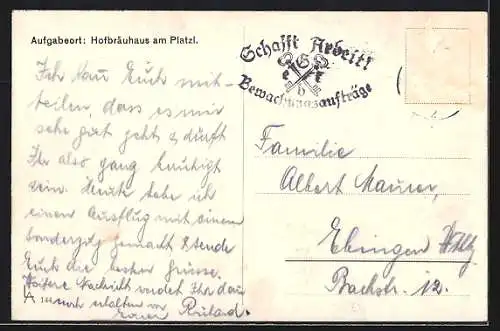 Aufgabeort: Hofbräuhaus am Platzl.
Schafft Arbeit!
Bewachungsaufträge
Ich kau Euch mit-
teilen, dass es mir
sehr gut geht & dürft
Ihr also ganz beruhigt
sein. Heute habe ich
einen Ausflug mit einem
Sonderzug gemacht & sende
Euch die besten Grüsse.
Weitere Nachricht werdet Ihr dan
erhalten von
Eurer Roland.
Familie
Albert Maurer,
Ebingen Wttbg
Bachstr. 12.